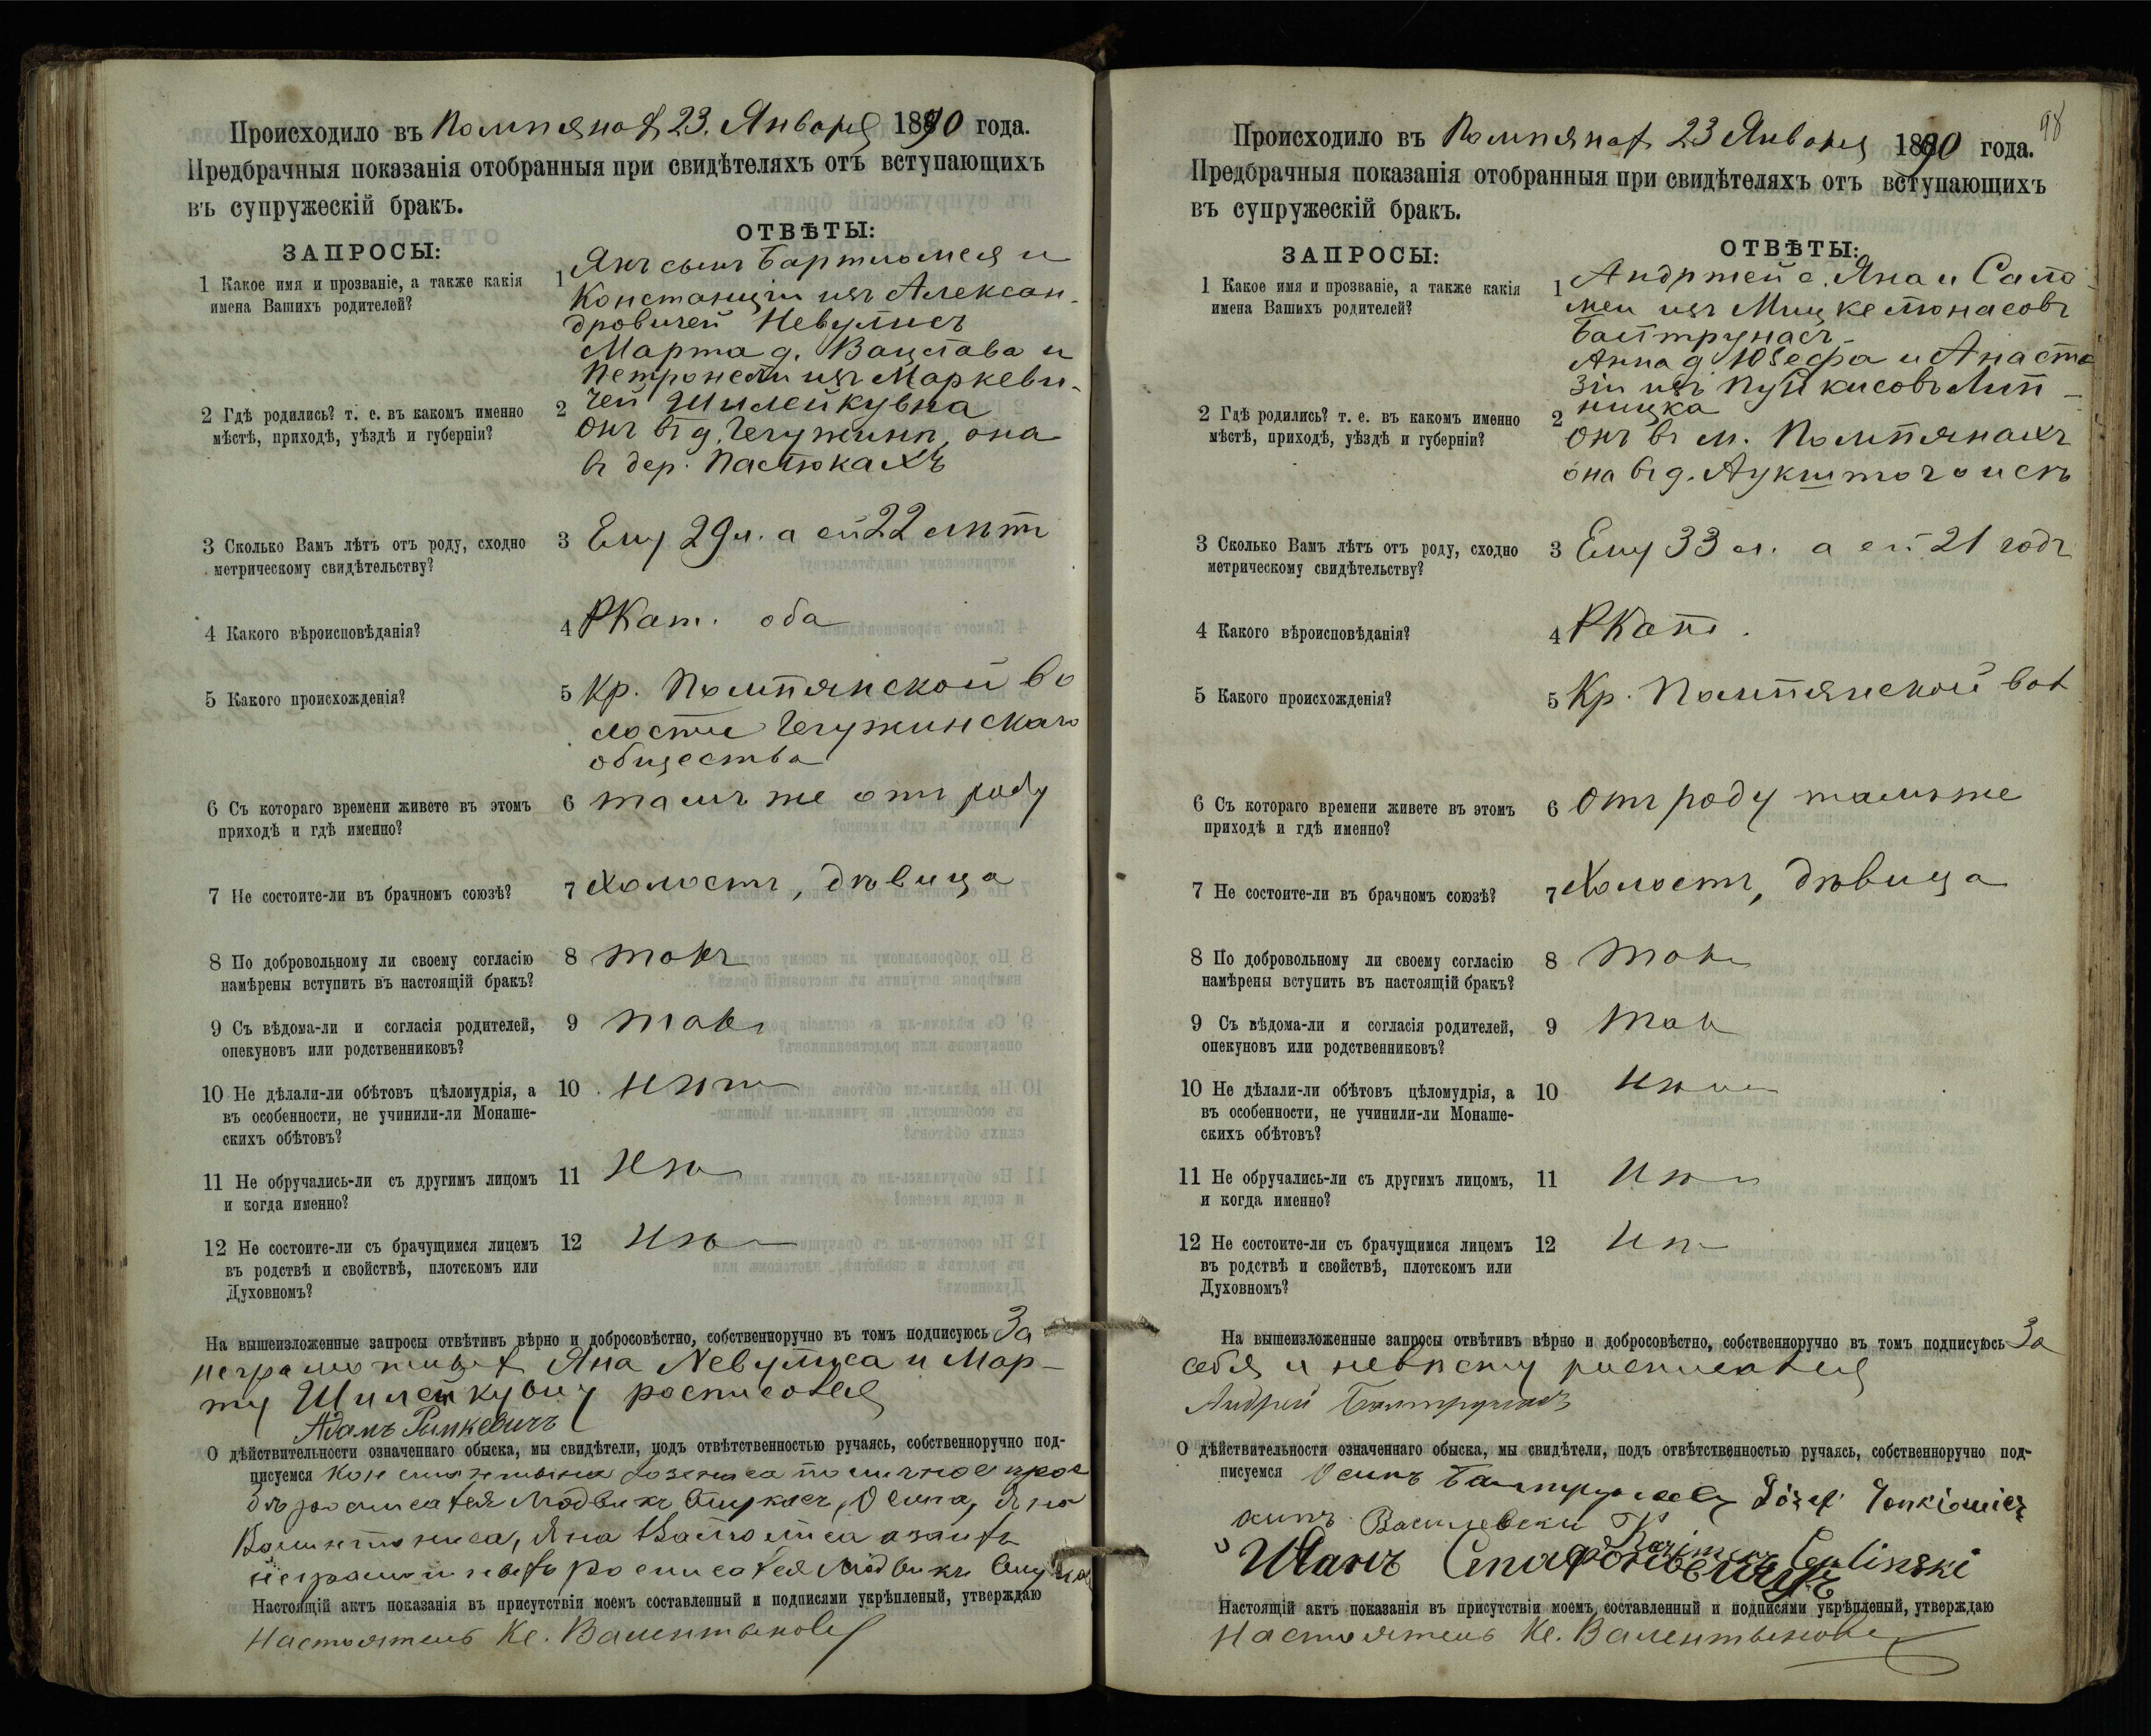 Происходило въ Помпянах 23. Января 1890 года.
Предбрачныя показанія отобранныя при свидѣтеляхъ отъ вступающихъ
въ супружескій бракъ.
ЗАПРОСЫ:
ОТВѢТЫ:
1 Какое имя и прозваніе, а также какія
имена Вашихъ родителей?
1 Янъ сынъ Бартломея и
Констанціи изъ Алексан-
дровичей Невулисъ
Марта д. Вацлава и
Петронели изъ Маркеви-
чей Шилейкувна
2 Гдѣ родились? т. е. въ какомъ именно
мѣстѣ, приходѣ, уѣздѣ и губерніи?
2 Онъ въ д. Чегужинп, она
въ дер. Пастюкахъ
3 Сколько Вамъ лѣтъ отъ роду, сходно
метрическому свидѣтельству?
3 Ему 29 л. а ей 22 лѣт
4 Какого вѣроисповѣданія?
4 РКат. оба
5 Какого происхожденія?
5 Кр. Помпянской во
лости Чегужинскаго
общества
6 Съ котораго времени живете въ этомъ
приходѣ и гдѣ именно?
6 тамъ же отъ роду
7 Не состоите-ли въ брачномъ союзѣ?
7 Холостъ, дѣвица
8 По добровольному ли своему согласію
намѣрены вступить въ настоящій бракъ?
8 такъ
9 Съ вѣдома-ли и согласія родителей,
опекуновъ или родственниковъ?
9 такъ
10 Не дѣлали-ли обѣтовъ цѣломудрія, а
въ особенности, не учинили-ли Монаше-
скихъ обѣтовъ?
10 нѣт
11 Не обручались-ли съ другимъ лицомъ
и когда именно?
11 нѣт
12 Не состоите-ли съ брачущимся лицемъ
въ родствѣ и свойствѣ, плотскомъ или
Духовномъ?
12 нѣт
На вышеизложенные запросы отвѣтивъ вѣрно и добросовѣстно, собственноручно въ томъ подписуюсь За
неграмотных Яна Невулиса и Мар-
ту Шилейкувну росписался
Адамъ Римкевичъ
О дѣйствительности означеннаго обыска, мы свидѣтели, подъ ответственностью ручаясь, собственноручно под-
писуемся
росписался Людвикъ Осипа, Яна
Яна а за ихъ
неграмотныхъ росписался Людвикъ
Настоящій актъ показанія въ присутствіи моемъ составленный и подписями укрѣпленый, утверждаю
Настоятель Кс. Валентынович
98
Происходило въ Помпянах 23 Января 1890 года.
Предбрачныя показанія отобранныя при свидѣтеляхъ отъ вступающихъ
въ супружескій бракъ.
ЗАПРОСЫ:
ОТВѢТЫ:
1 Какое имя и прозваніе, а также какія
имена Вашихъ родителей?
1 Андржей с. Яна и Сало
меи изъ Мицкелюнасовъ
Балтрунасъ
Анна д. Юзефа и Анаста
зіи изъ Пуйкисовъ Лип-
ницка
2 Гдѣ родились? т. е. въ какомъ именно
мѣстѣ, приходѣ, уѣздѣ и губерніи?
2 Онъ въ м. Помпянахъ
она въ д.
3 Сколько Вамъ лѣтъ отъ роду, сходно
метрическому свидѣтельству?
3 Ему 33 л. а ей 21 годъ
4 Какого вѣроисповѣданія?
4 РКат.
5 Какого происхожденія?
5 Кр. Помпянской вол
6 Съ котораго времени живете въ этомъ
приходѣ и гдѣ именно?
6 Отъ роду тамъ же
7 Не состоите-ли въ брачномъ союзѣ?
7 Холостъ, дѣвица
8 По добровольному ли своему согласію
намѣрены вступить въ настоящій бракъ?
8 такъ
9 Съ вѣдома-ли и согласія родителей,
опекуновъ или родственниковъ?
9 такъ
10 Не дѣлали-ли обѣтовъ цѣломудрія, а
въ особенности, не учинили-ли Монаше-
скихъ обѣтовъ?
10 нѣт
11 Не обручались-ли съ другимъ лицомъ,
и когда именно?
11 нѣт
12 Не состоите-ли съ брачущимся лицемъ
въ родствѣ и свойствѣ, плотскомъ или
Духовномъ?
12 нѣт
На вышеизложенные запросы отвѣтивъ вѣрно и добросовѣстно, собственноручно въ томъ подписуюсь За
себя и невѣсту росписался
Андрей Балтрунасъ
О дѣйствительности означеннаго обыска, мы свидѣтели, подъ отвѣтственностью ручаясь, собственноручно под-
писуемся Осипъ Józef
Василевски
Иванъ Ceplinski
Настоящій актъ показанія въ присутствіи моемъ составленный и подписями укрѣпленый, утверждаю
Настоятель Кс. Валентынович